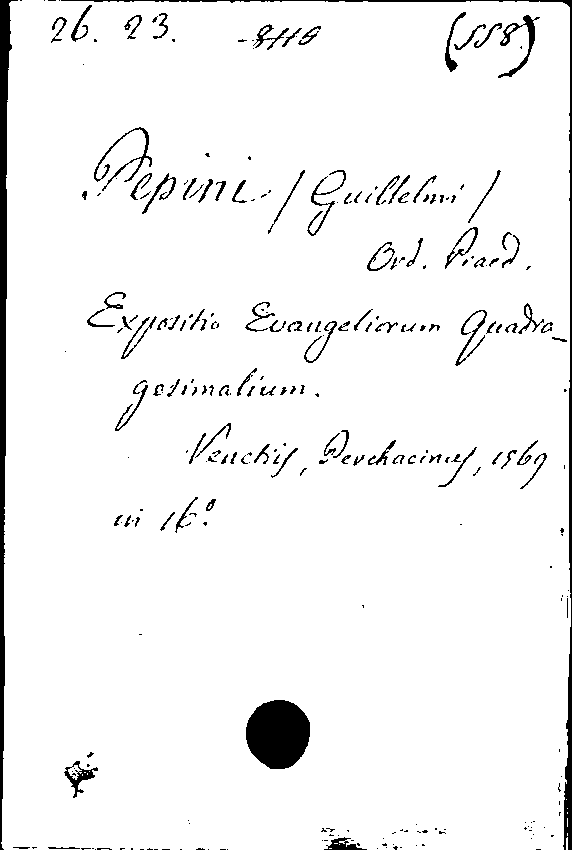 26. 23. (558)
Pepini / Guillelmi /
Ord. Praed.
Expositio Evangeliorum Quadra-
gesimalium.
Venetiis, Perchacinus, 1569
in 16º.